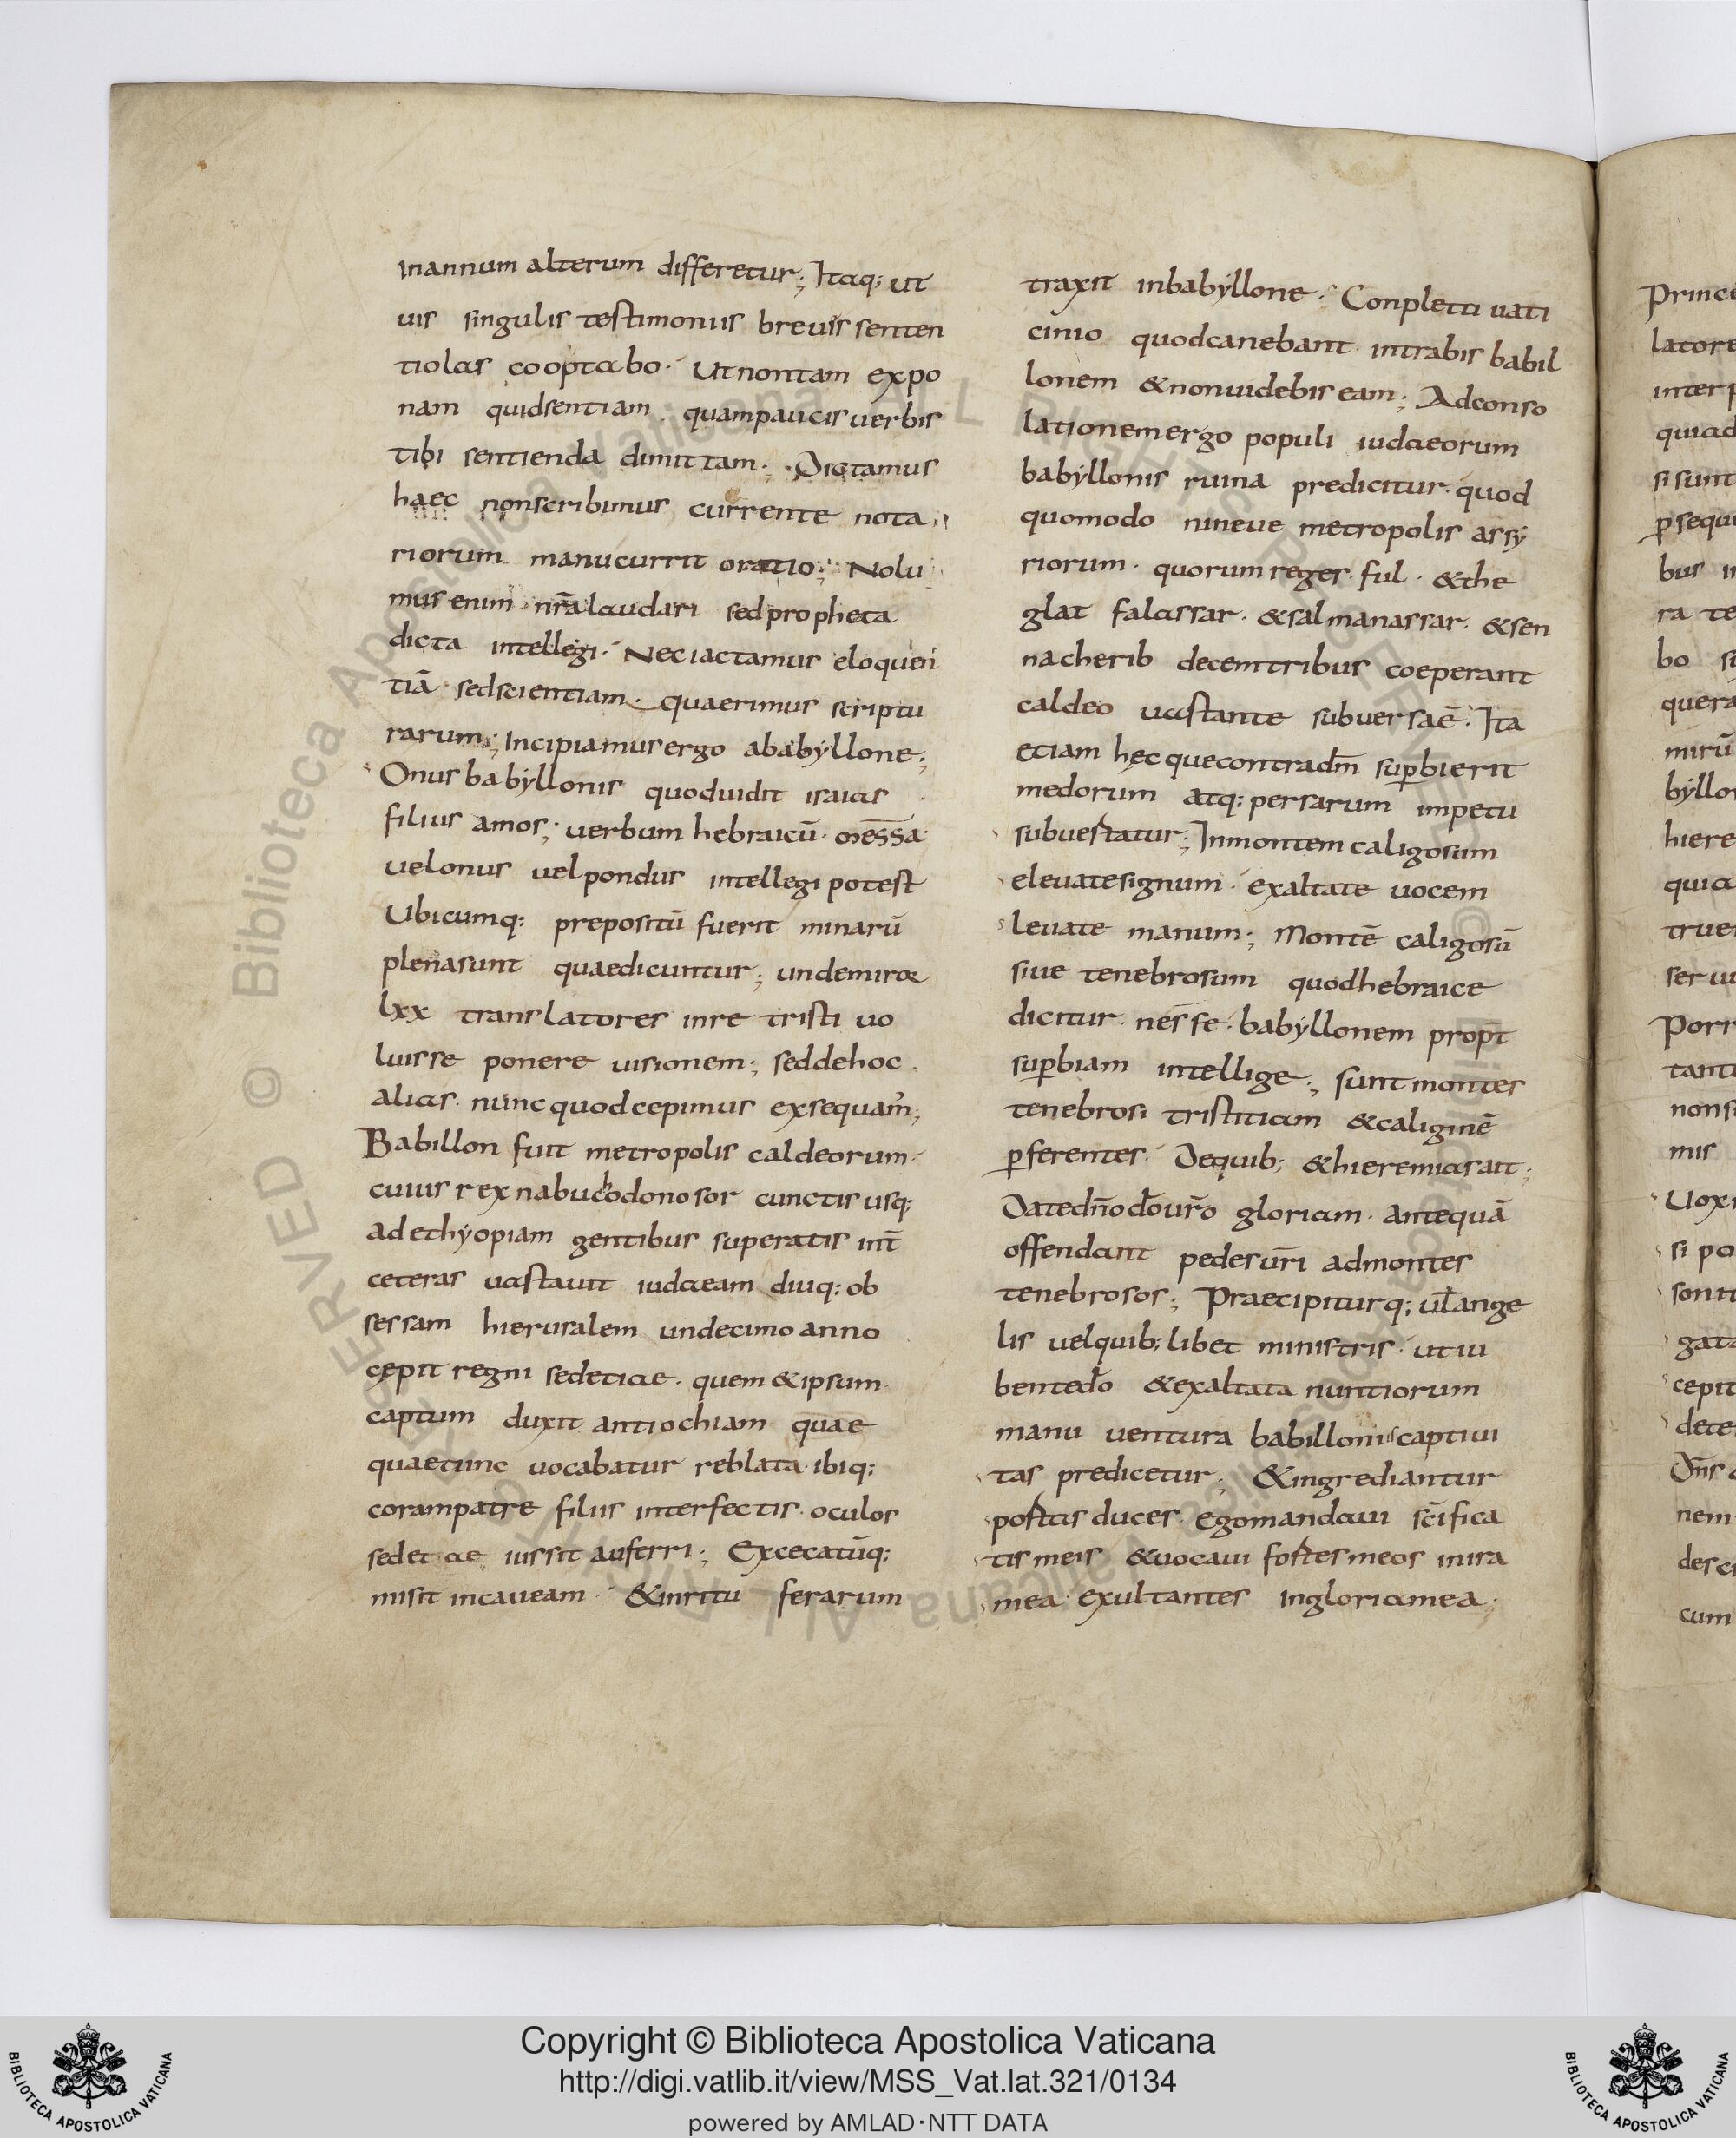 inannum alterum differetur; Itaq; ut
uis singulis testimoniis breuis senten
tiolas cooptabo. Utnontam expo
nam quidsentiam. quampaucisuerbis
tibi sentienda dimittam; Dictamus
haec nonscribimus currente nota
riorum manucurrit oratio; Nolu
mus enim nr̄alaudari sedpropheta
dicta intellegi. Neciactamus eloquen
tiā sedscientiam. quaerimus scriptu
rarum; Incipiamusergo ababyllone;
Onusbabyllonis quoduidit isaias
filius amos; uerbum hebraicū. messa
uelonus uelpondus intellegi potest
Ubicumq; prepositū fuerit minarū
plenasunt quaedicuntur; undemiror
lxx translatores inre tristi uo
luisse ponere uisionem; seddehoc
alias. nuncquodcepimus exsequam̄;
Babillon fuit metropolis caldeorum.
cuius rex nabuchodonosor cunctis usq;
adethyopiam gentibus superatis int̄
ceteras uastauit iudaeam diuq; ob
sessam hierusalem undecimo anno
cepit regni sedetiae. quem &ipsum
captum duxit antiochiam quae
quaetunc uocabatur reblata. ibiq;
corampatre filiis interfectis. oculos
sedetiae iussit auferri; Excecatūq;
misit incaueam. &inritu ferarum
traxit inbabyllone. Conpleti uati
cinio quodcanebant. intrabis babil
lonem &nonuidebis eam; Adconso
lationemergo populi iudaeorum
babyllonis ruina predicitur. quod
quomodo nineue metropolis assy
riorum. quorumreges. ful. &the
glat falassar. &salmanassar. &sen
nacherib decemtribus coeperant
caldeo uastante subuersaē. Ita
etiam hęcquecontradm̄ sup̱bierit
medorum atq; persarum impetu
subuestatur; Inmontem caligosum
eleuatesignum. exaltate uocem
leuate manum; Montē caligosū
siue tenebrosum quodhebraice
dicitur. nesfe. babyllonem propt̄
sup̱biam intellige; sunt montes
tenebrosi tristitiam &caliginē
p̱ferentes. Dequib; &hieremiasait;
Datedn̄odōur̄o gloriam. antequā
offendant pedesur̄i admontes
tenebrosos; Praecipiturq; ul̄ange
lis uelquib; libet ministris. utiu
bentedō &exaltata nuntiorum
manu uentura babilloniscaptiui
tas predicetur; &ingrediantur
portas duces. Egomandaui scī fica
tis meis &uocaui fortes meos inira
mea. exultantes ingloriamea.
Copyright © Biblioteca Apostolica Vaticana
http://digi.vatlib.it/view/MSS_Vat.lat.321/0134
powered by AMLAD·NTT DATA
BIBLIOTECA APOSTOLICA VATICANA
BIBLIOTECA APOSTOLICA VATICANA